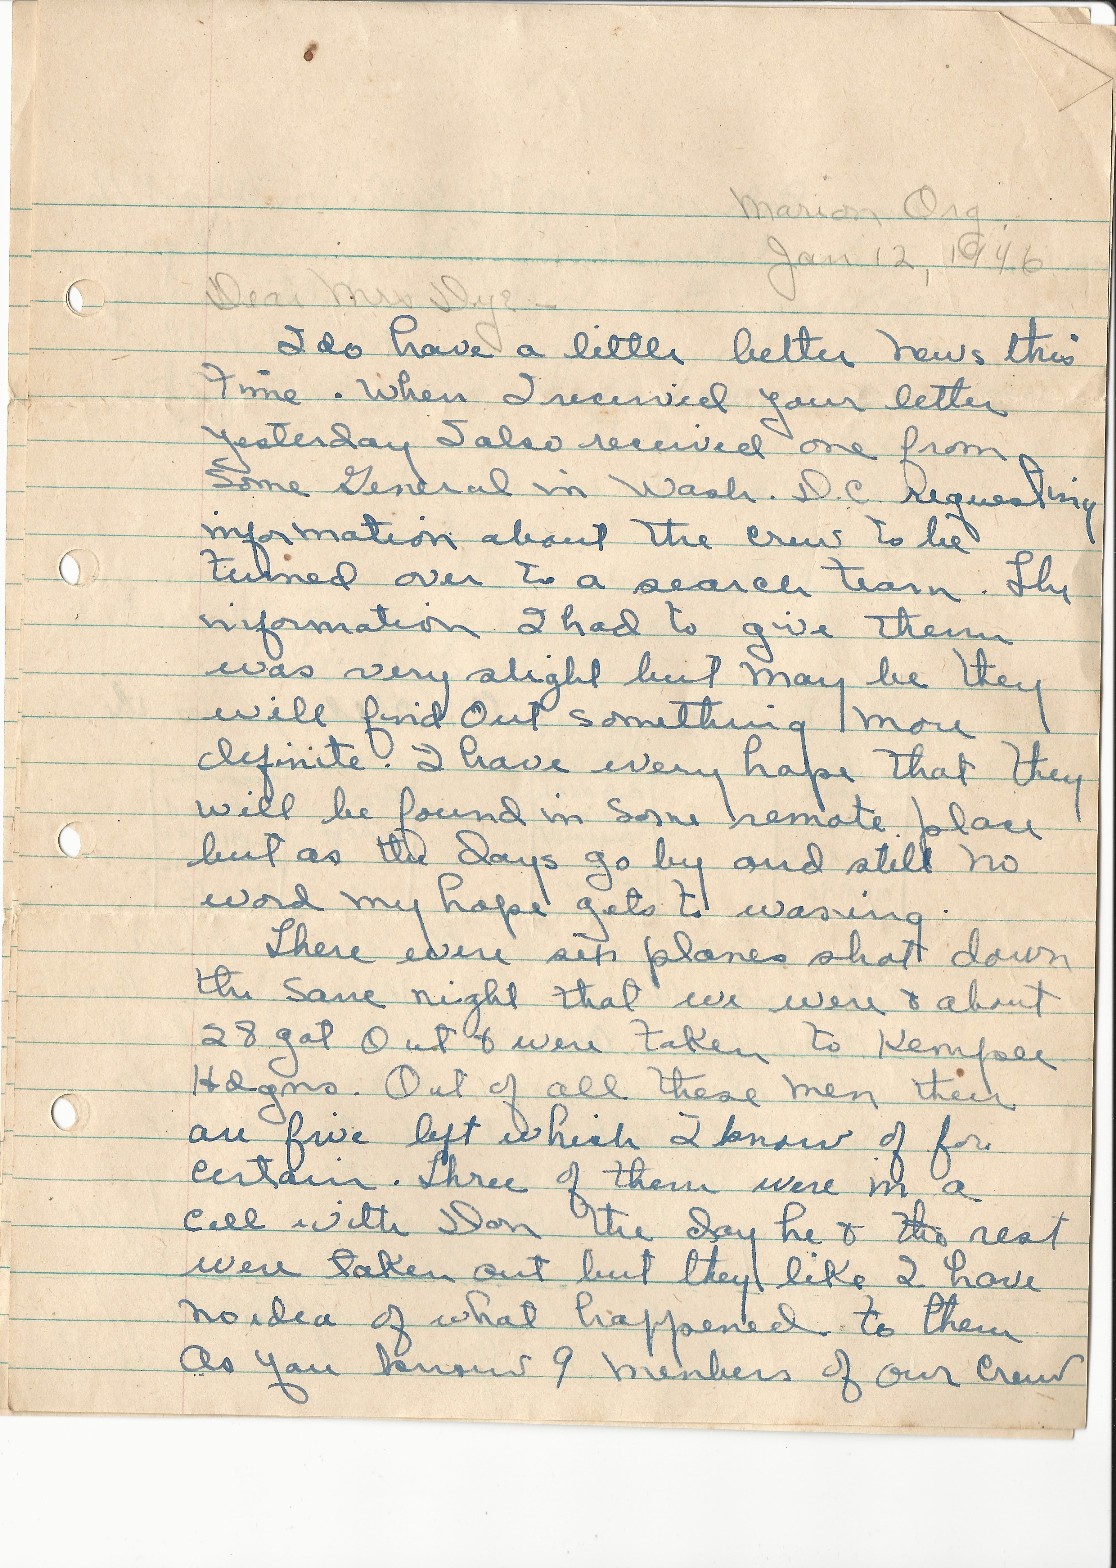 Marion Org.
Jan 12, 1946
Dear Mrs Dye -
I do have a little better news this
Time. When I received your letter
yesterday I also received one from
Some General in Wash. D.C requesting
information about the crew to be
turned over to a search team. The
information I had to give them
was very slight but may be they
will find out something more
definite. I have every hope that they
will be found in some remote place
but as the days go by and still no
word my hope gets to wavering.
There were six planes shot down
the same night that we were & about
28 got out & were taken to Kempee
Hdqrs. Out of all these men their
are five left which I know of for
certain. Three of them were in a
cell with Don the day he & the rest
were taken out but they like I have
no idea of what happened to them
As you know 9 members of our crew